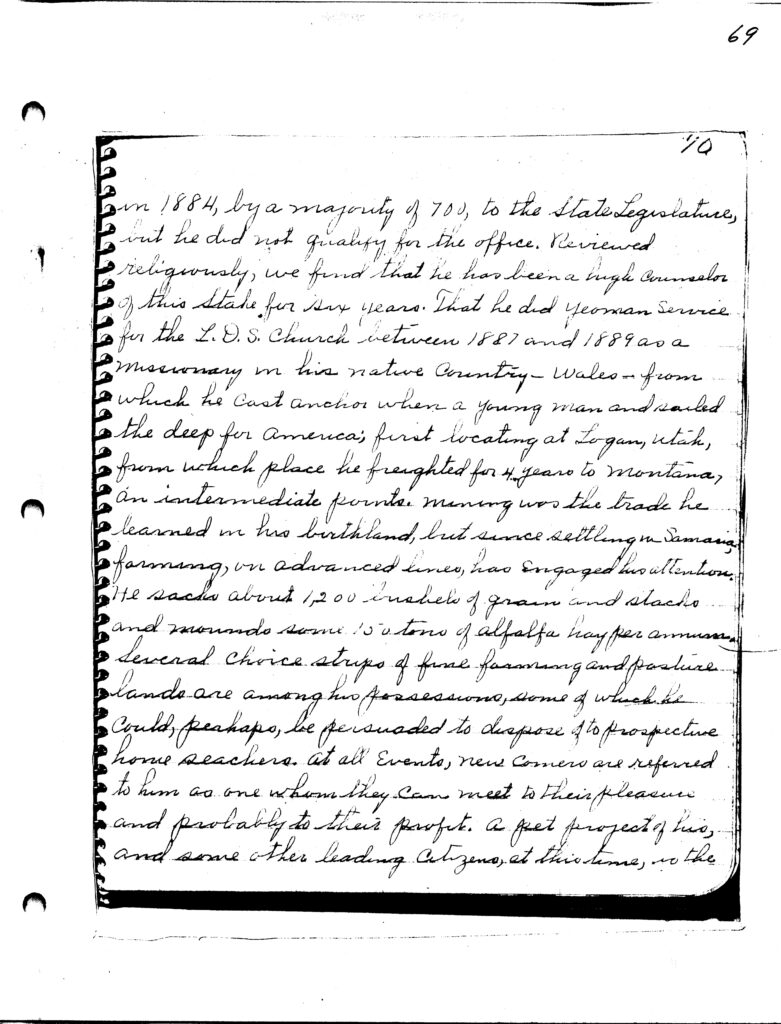 69
70
in 1884, by a majority of 700, to the State Legislature,
but he did not qualify for the office. Reviewed
religiously, we find that he has been a high Counselor
of this Stake for six years. That he did yeoman Service
for the L.D.S. Church between 1887 and 1889 as a
Missionary in his native Country - Wales - from
which he Cast anchor when a young man and sailed
the deep for America; first locating at Logan, Utah,
from which place he freighted for 4 years to Montana,
an intermediate points. Mining was the trade he
learned in his birthland, but since settling in Samaria,
farming, on advanced lines, has Engaged his attention.
He sacks about 1,200 bushels of grain and stacks
and mounds some 150 tons of alfalfa hay per annum.
Several Choice strips of fine farming and pasture
lands are among his possessions, some of which he
Could, perhaps, be persuaded to dispose of to prospective
home seachers. At all Events, new Comers are referred
to him as one whom they Can meet to their pleasure
and probably to their profit. A pet project of his,
and some other leading Citizens, at this time, is the